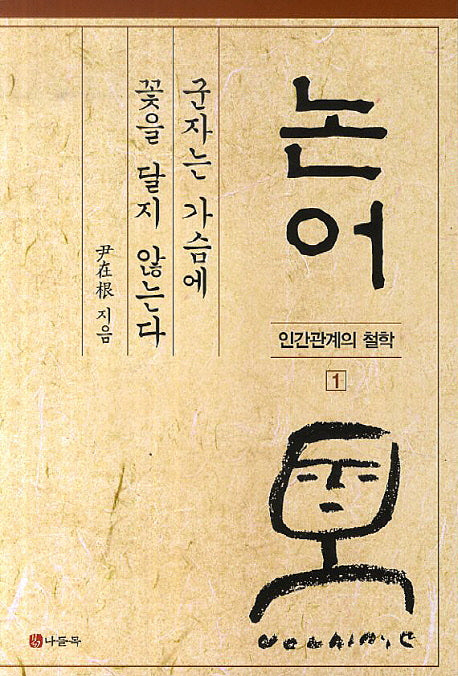 논어
인간관계의 철학
1
군자는 가슴에
꽃을 달지 않는다
尹在根 지음
나들목